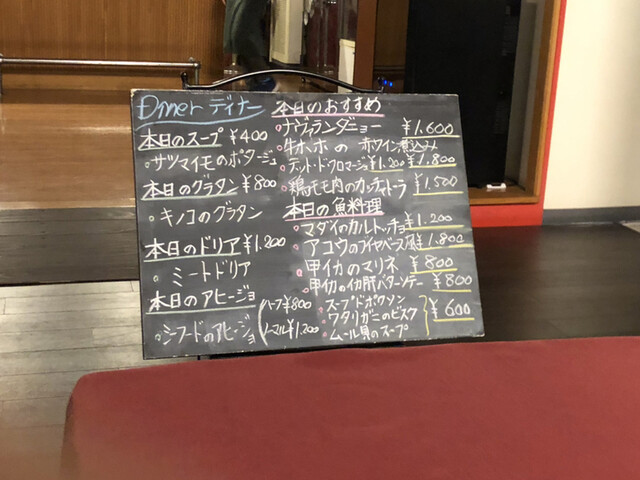 Dinner ディナー
本日のスープ ¥400
・サツマイモのポタージュ
本日のグラタン ¥800
・キノコのグラタン
本日のドリア ¥1.200
・ミートドリア
本日のアヒージョ
・シーフードのアヒージョ
ハーフ¥800
ノーマル¥1.200
本日のおすすめ
・ナヴァランダニョー ¥1.600
・牛ホホの赤ワイン煮込み ¥1.800
・テット・ド・フロマージュ ¥1.200
・鶏モモ肉のカッチャトーラ ¥1.500
本日の魚料理
・マダイのカルトッチョ ¥1.200
・アコウのブイヤベース ¥1.800
・甲イカのマリネ ¥800
・甲イカのイカ肝バターソテー ¥800
・スープドポワソン
・ワタリガニのビスク ¥600
・ムール貝のスープ